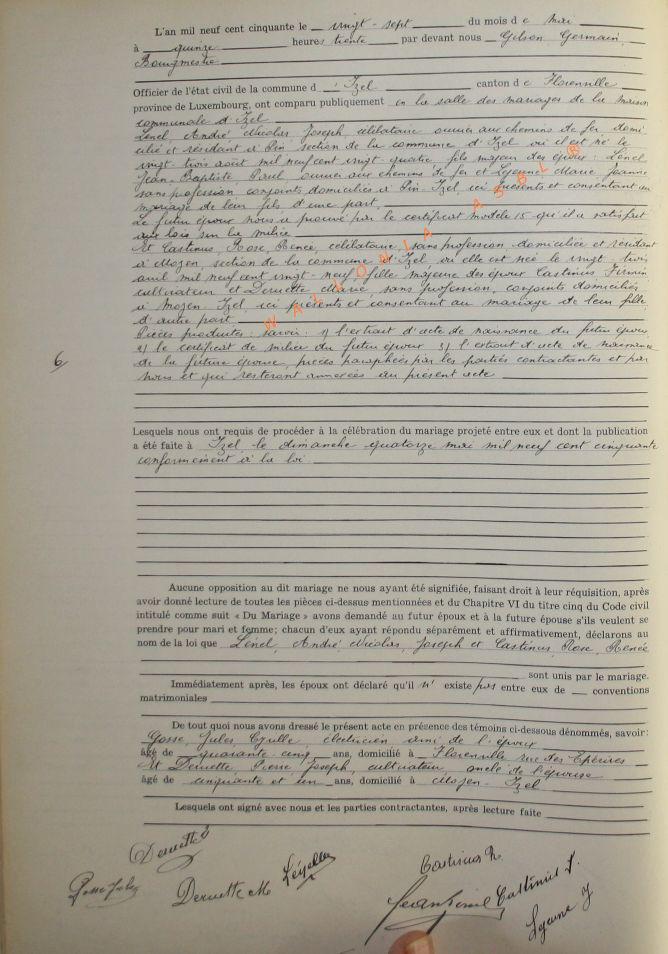 L'an mil neuf cent cinquante le vingt-sept du mois d e mai
à quinze heures trente par devant nous Gilson Germain,
Bourgmestre
Officier de l'état civil de la commune d'Izel canton d e Florenville
province de Luxembourg, ont comparu publiquement en la salle des mariages de la maison
communale d'Izel
Lénel, André Nicolas Joseph, célibataire ouvrier aux chemins de fer domi
cilié et résidant à Pin section de la commune d'Izel où il est né le
vingt-trois août mil neuf cent vingt-quatre, fils majeur des époux : Lénel
Jean-Baptiste Paul ouvrier aux chemins de fer et Lejeune Marie Jeanne
sans profession conjoints domiciliés à Pin-Izel, ici présents et consentant au
mariage de leur fils d'une part.
Le futur époux nous a prouvé par le certificat modèle 15 qu'il a satisfait
aux lois sur la milice
Et Castinus, Rose, Renée, célibataire, sans profession domiciliée et résidant
à Moyen, section de la commune d'Izel où elle est née le vingt-trois
avril mil neuf cent vingt-neuf, fille majeure des époux Castinus Firmin
cultivateur et Deruette Marie, sans profession, conjoints domiciliés
à Moyen-Izel, ici présents et consentant au mariage de leur fille
d'autre part
Pièces produites : savoir : 1) l'extrait d'acte de naissance du futur époux
2) le certificat de milice du futur époux 3) l'extrait d'acte de naissance
de la future épouse, pièces paraphées par les parties contractantes et par
nous et qui resteront annexées au présent acte
WALLONIA ASBL B
6
Lesquels nous ont requis de procéder à la célébration du mariage projeté entre eux et dont la publication
a été faite à Izel le dimanche quatorze mai mil neuf cent cinquante
conformément à la loi
Aucune opposition au dit mariage ne nous ayant été signifiée, faisant droit à leur réquisition, après
avoir donné lecture de toutes les pièces ci-dessus mentionnées et du Chapitre VI du titre cinq du Code civil
intitulé comme suit « Du Mariage » avons demandé au futur époux et à la future épouse s'ils veulent se
prendre pour mari et femme; chacun d'eux ayant répondu séparément et affirmativement, déclarons au
nom de la loi que Lénel, André Nicolas, Joseph et Castinus, Rose, Renée
sont unis par le mariage.
Immédiatement après, les époux ont déclaré qu'il n' existe pas entre eux de conventions
matrimoniales
De tout quoi nous avons dressé le présent acte en présence des témoins ci-dessous dénommés, savoir:
Gosse, Jules électricien ami de l'époux
âgé de quarante-cinq ans, domicilié à Florenville rue des Epérires
Et Deruette Pierre Joseph, cultivateur, oncle de l'épouse
âgé de cinquante et un ans, domicilié à Moyen-Izel
Lesquels ont signé avec nous et les parties contractantes, après lecture faite
Deruette
Gosse Jules
Deruette M
Castinus R.
Castinus F.
Lejeune J